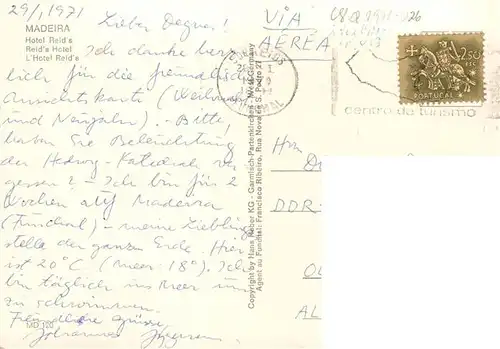 29/1, 1971
MADEIRA
Hotel Reid's
Reid's Hotel
L'Hotel Reid's
Lieber
Ich danke herz-
lich für die freundliche
Ansichtskarte (Weihnacht
und Neujahr). - Bitte!
haben Sie Beleuchtung
der Hedwig-Kathedrale ver-
gessen? - Ich bin für 2
Wochen auf Madeira
(Funchal) - meine Lieblings
stelle der ganzen Erde. Hier
ist 20°C (Meer: 18°). Ich
bin täglich ins Meer um
zu schwimmen.
Freundliche Grüsse,
Johannes
MD 120
Copyright by Hans Huber KG - Garmisch-Partenkirchen - West-Germany
Agent au Funchal: Francisco Ribeiro, Rua Nova de S. Pedro 27
VIA
AÉREA
2$50
PORTUGAL
centro de turismo
DDR-